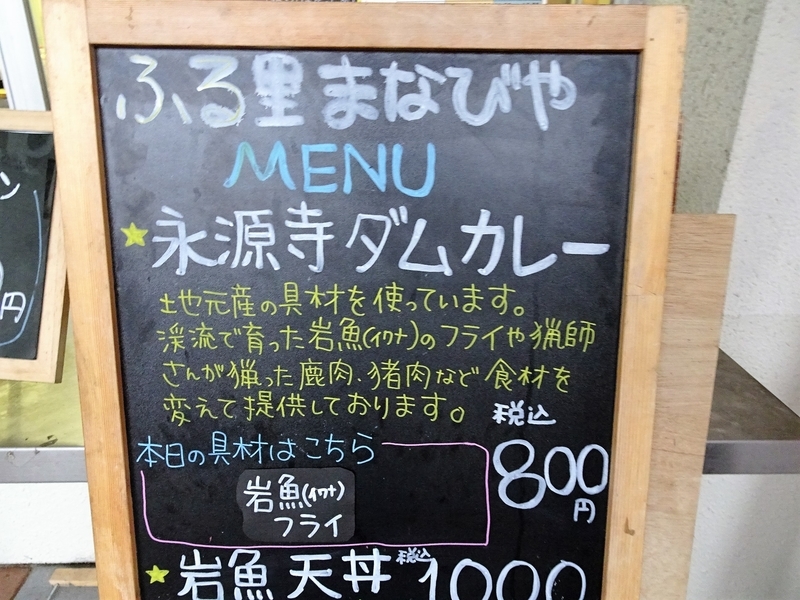 ふる里まなびや
MENU
★永源寺ダムカレー
地元産の具材を使っています。
渓流で育った岩魚(イワナ)のフライや猟師
さんが猟った鹿肉、猪肉など食材を
変えて提供しております。
税込
800
円
本日の具材はこちら
岩魚(イワナ)
フライ
★岩魚天丼 税込1000
ン
円